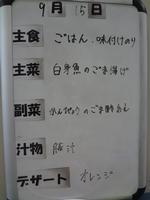 9月15日
主食 ごはん、味付けのり
主菜 白身魚のごま揚げ
副菜 ほうれん草のごま酢あえ
汁物 豚汁
デザート オレンジ